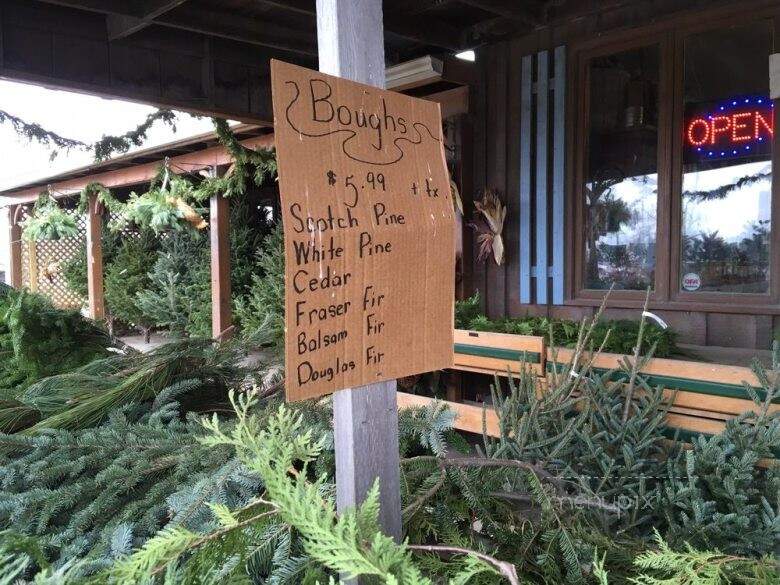 Boughs
$5.99 + tx
Scotch Pine
White Pine
Cedar
Fraser Fir
Balsam Fir
Douglas Fir
OPEN
menupix